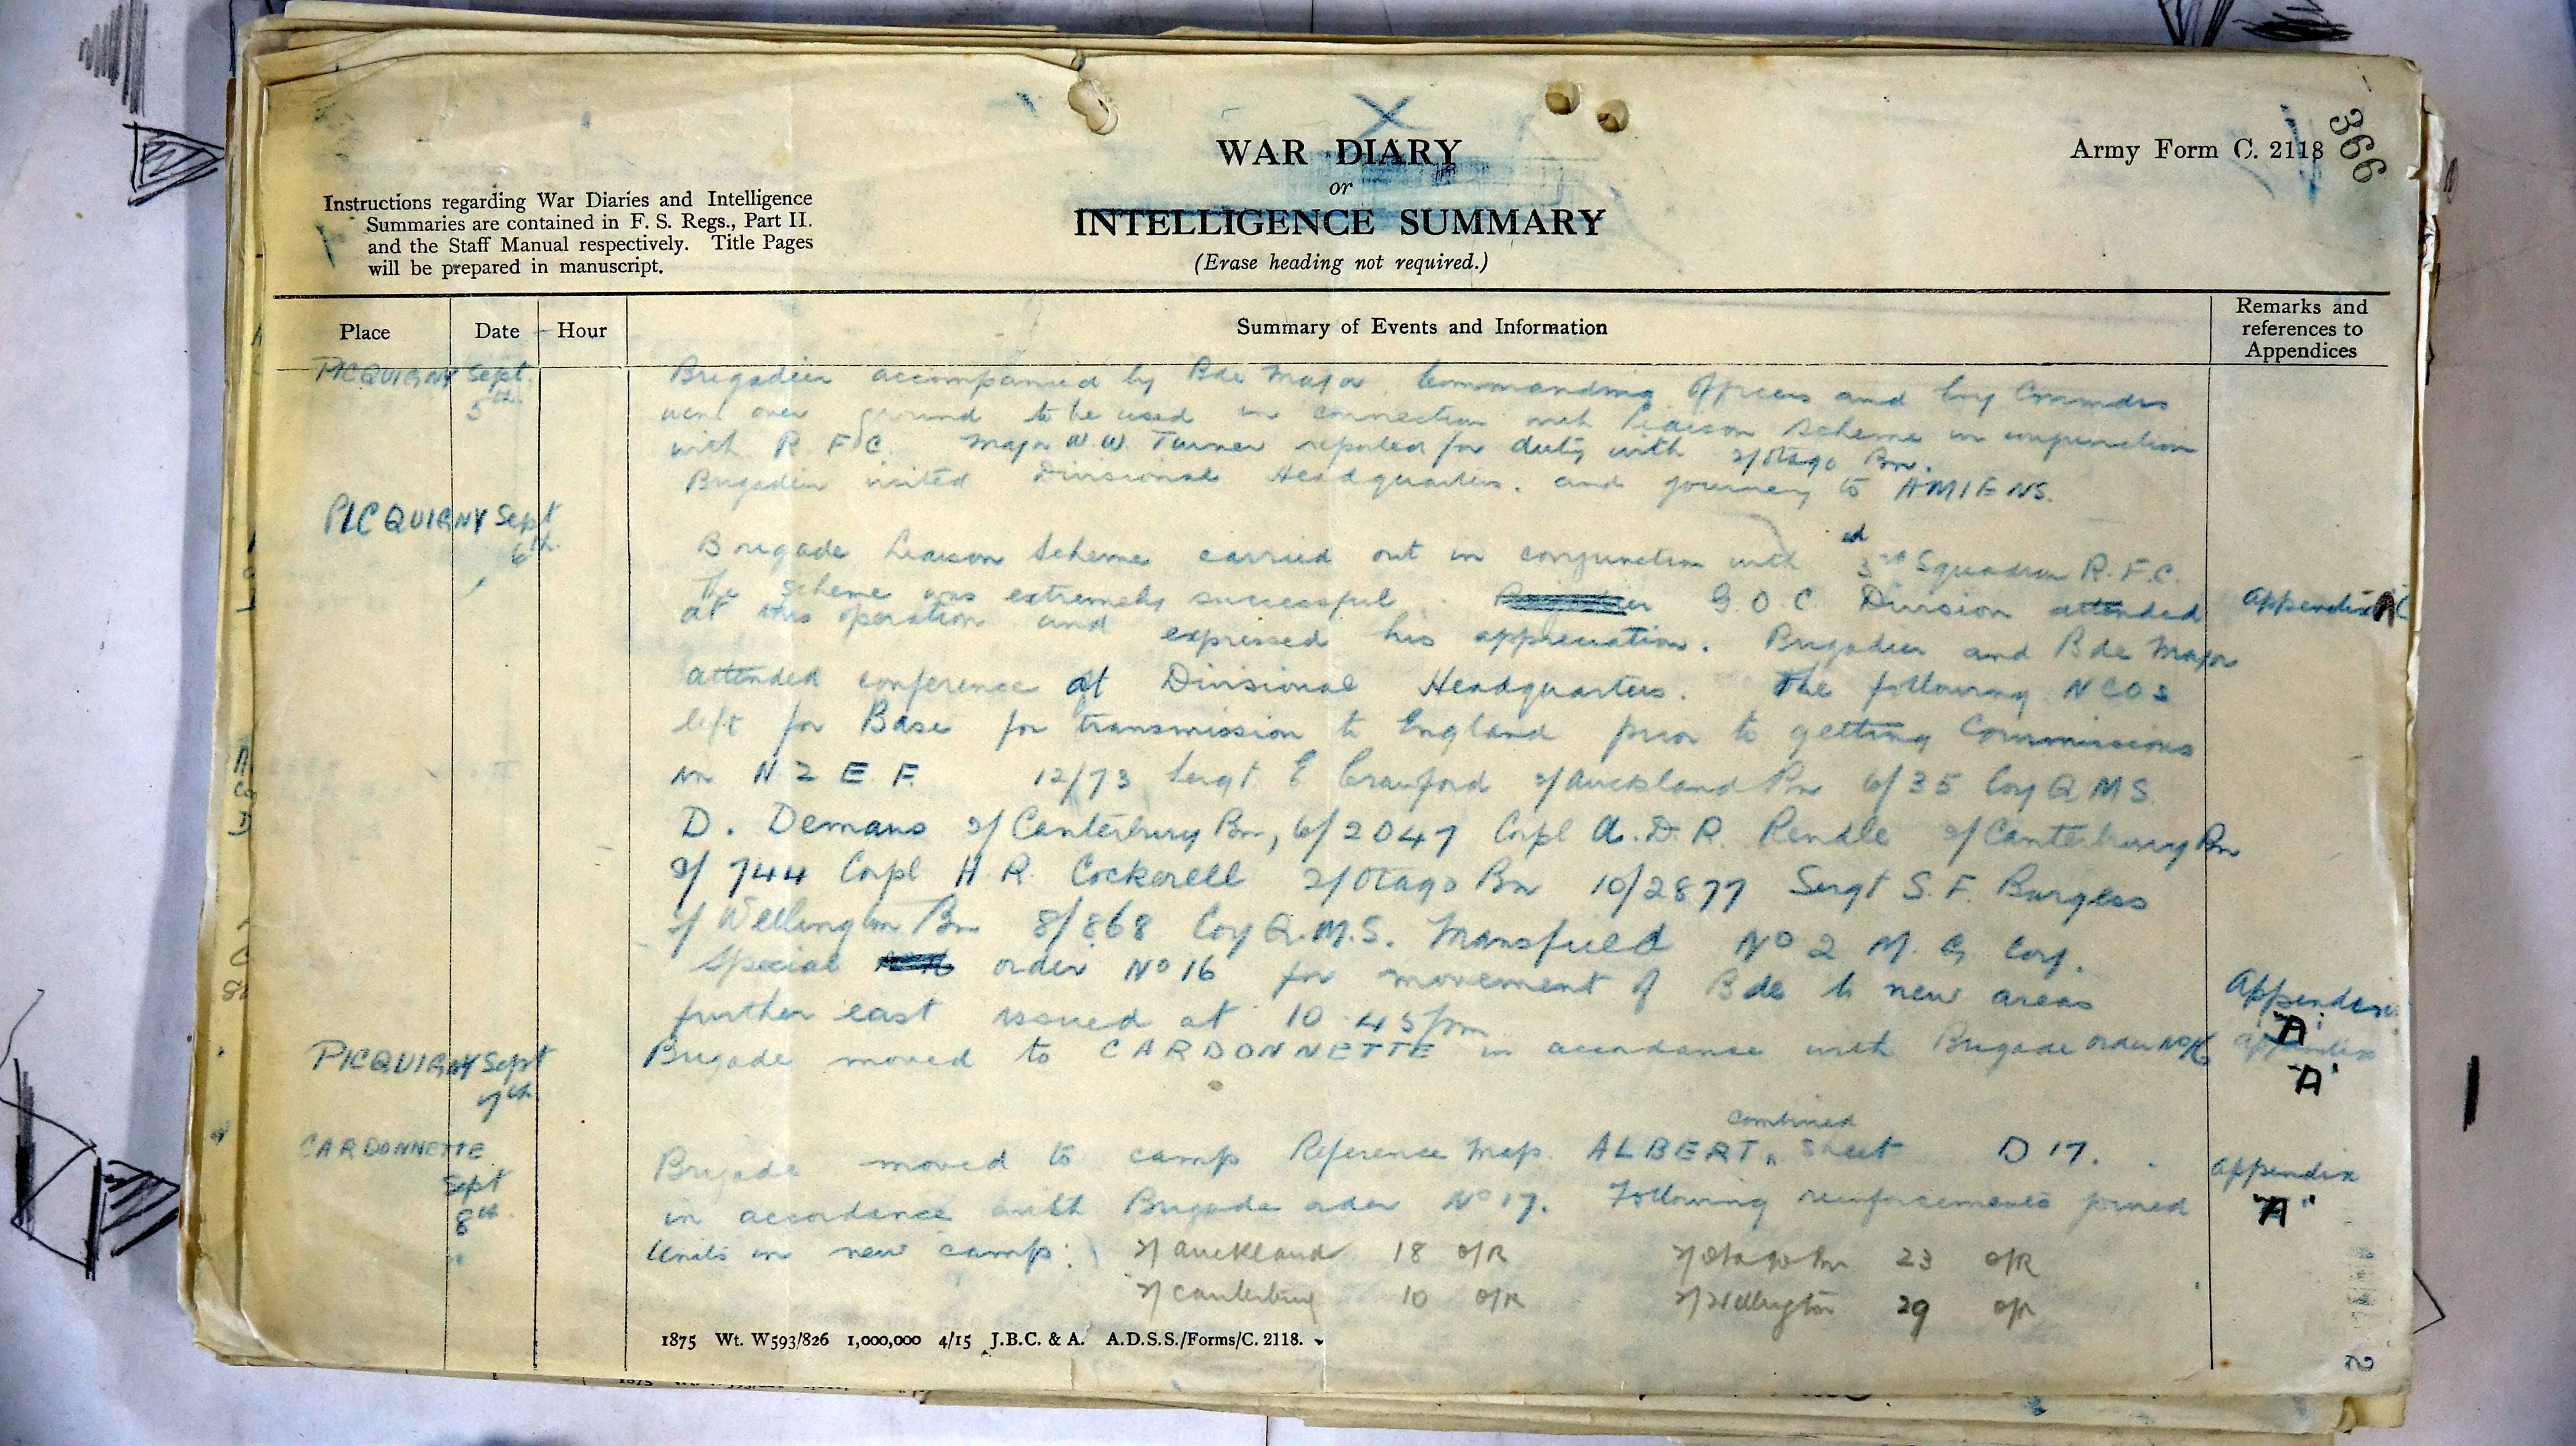 366
Army Form C. 2118
WAR DIARY
or
INTELLIGENCE SUMMARY
(Erase heading not required.)
Instructions regarding War Diaries and Intelligence
Summaries are contained in F. S. Regs., Part II.
and the Staff Manual respectively. Title Pages
will be prepared in manuscript.
Place Date Hour Summary of Events and Information Remarks and references to Appendices
PICQUIGNY Sept. 5th Brigadier accompanied by Bde Major Commanding Officers and Coy Commdrs
went over ground to be used in connection with Liaison Scheme in conjunction
with R F C. Major W. W. Turner reported for duty with 2/Otago Bn.
Brigadier visited Divisional Headquarters. and journey to AMIENS.
PICQUIGNY Sept 6th
Brigade Liaison Scheme carried out in conjunction with 3rd Squadron R.F.C.
The scheme was extremely successful. G.O.C. Division attended Appendix
at this operation and expressed his appreciation. Brigadier and Bde Major
attended conference at Divisional Headquarters. The following NCOs
left for Base for transmission to England prior to getting Commissions
in N Z E F. 12/73 Sergt E Crawford 2/Auckland Bn 6/35 Coy Q M S.
D. Demans 2/Canterbury Bn, 6/2047 Corpl A. D. R. Rendle 2/Canterbury Bn
8/744 Corpl H. R. Cockerell 2/Otago Bn 10/2877 Sergt S. F. Burgess
2/Wellington Bn 8/868 Coy Q.M.S. Mansfield No 2 M. G. Coy.
Special order No 16 for movement of Bde to new areas Appendix
further east issued at 10.45 pm "A"
PICQUIGNY Sept 7th Brigade moved to CARDONNETTE in accordance with Brigade order No 16 appendix "A"
CARDONNETTE Sept 8th
combined
Brigade moved to camp Reference Map ALBERT Sheet D 17. appendix
in accordance with Brigade order No 17. Following reinforcements joined "A"
Units in new camp: 2/Auckland 18 O/R 2/Otago Bn 23 O/R
2/Canterbury 10 O/R 2/Wellington 29 O/R
1875 Wt. W593/826 1,000,000 4/15 J.B.C. & A. A.D.S.S./Forms/C. 2118.